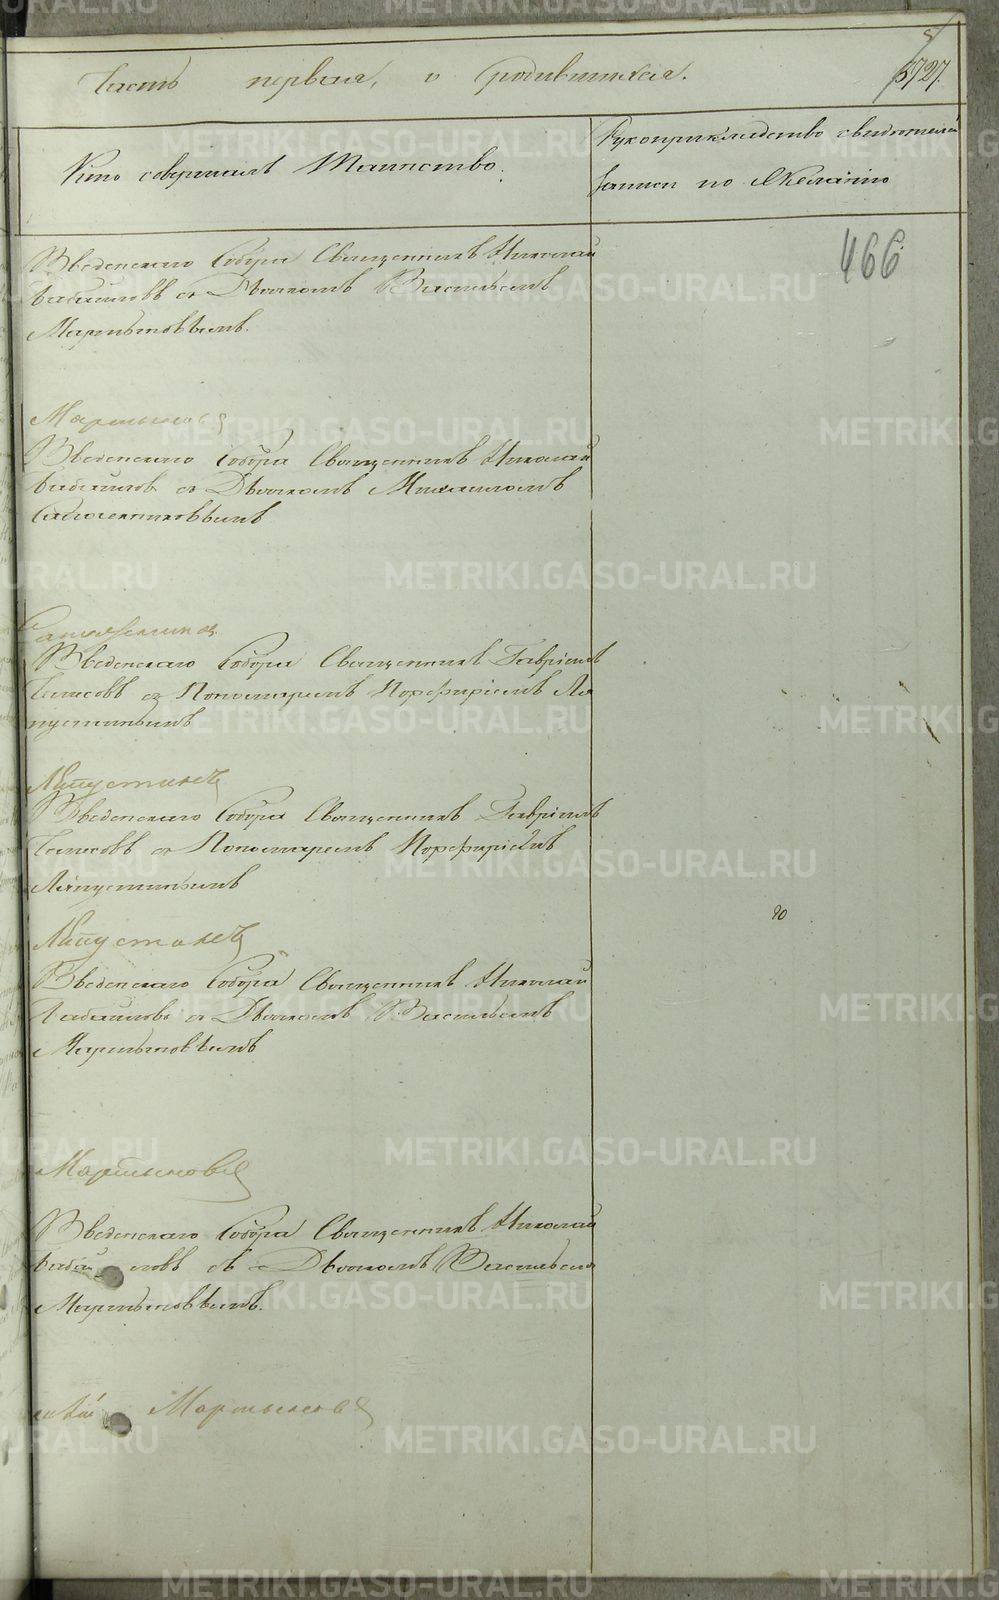 Часть первая, о родившихся.
5727.
Кто совершалъ Таинство.
Рукоприкладство свидѣтелей
записи по желанію
466
Введенскаго Собора Священникъ Николай
съ Дьякономъ Васильемъ
Мартыновымъ.
Мартыновъ
Введенскаго Собора Священникъ Николай
съ Дьякономъ Михаиломъ
Сапожниковымъ
Сапожниковъ
Введенскаго Собора Священникъ Гавріилъ
съ Пономаремъ Порфиріемъ Ла
пустинымъ
Лапустинъ
Введенскаго Собора Священникъ Гавріилъ
съ Пономаремъ Порфиріемъ
Лапустинымъ
Лапустинъ
Введенскаго Собора Священникъ Николай
съ Дьякономъ Васильемъ
Мартыновымъ
Мартыновъ
Введенскаго Собора Священникъ Николай
съ Дьякономъ Васильемъ
Мартыновымъ.
Мартыновъ
METRIKI.GASO-URAL.RU